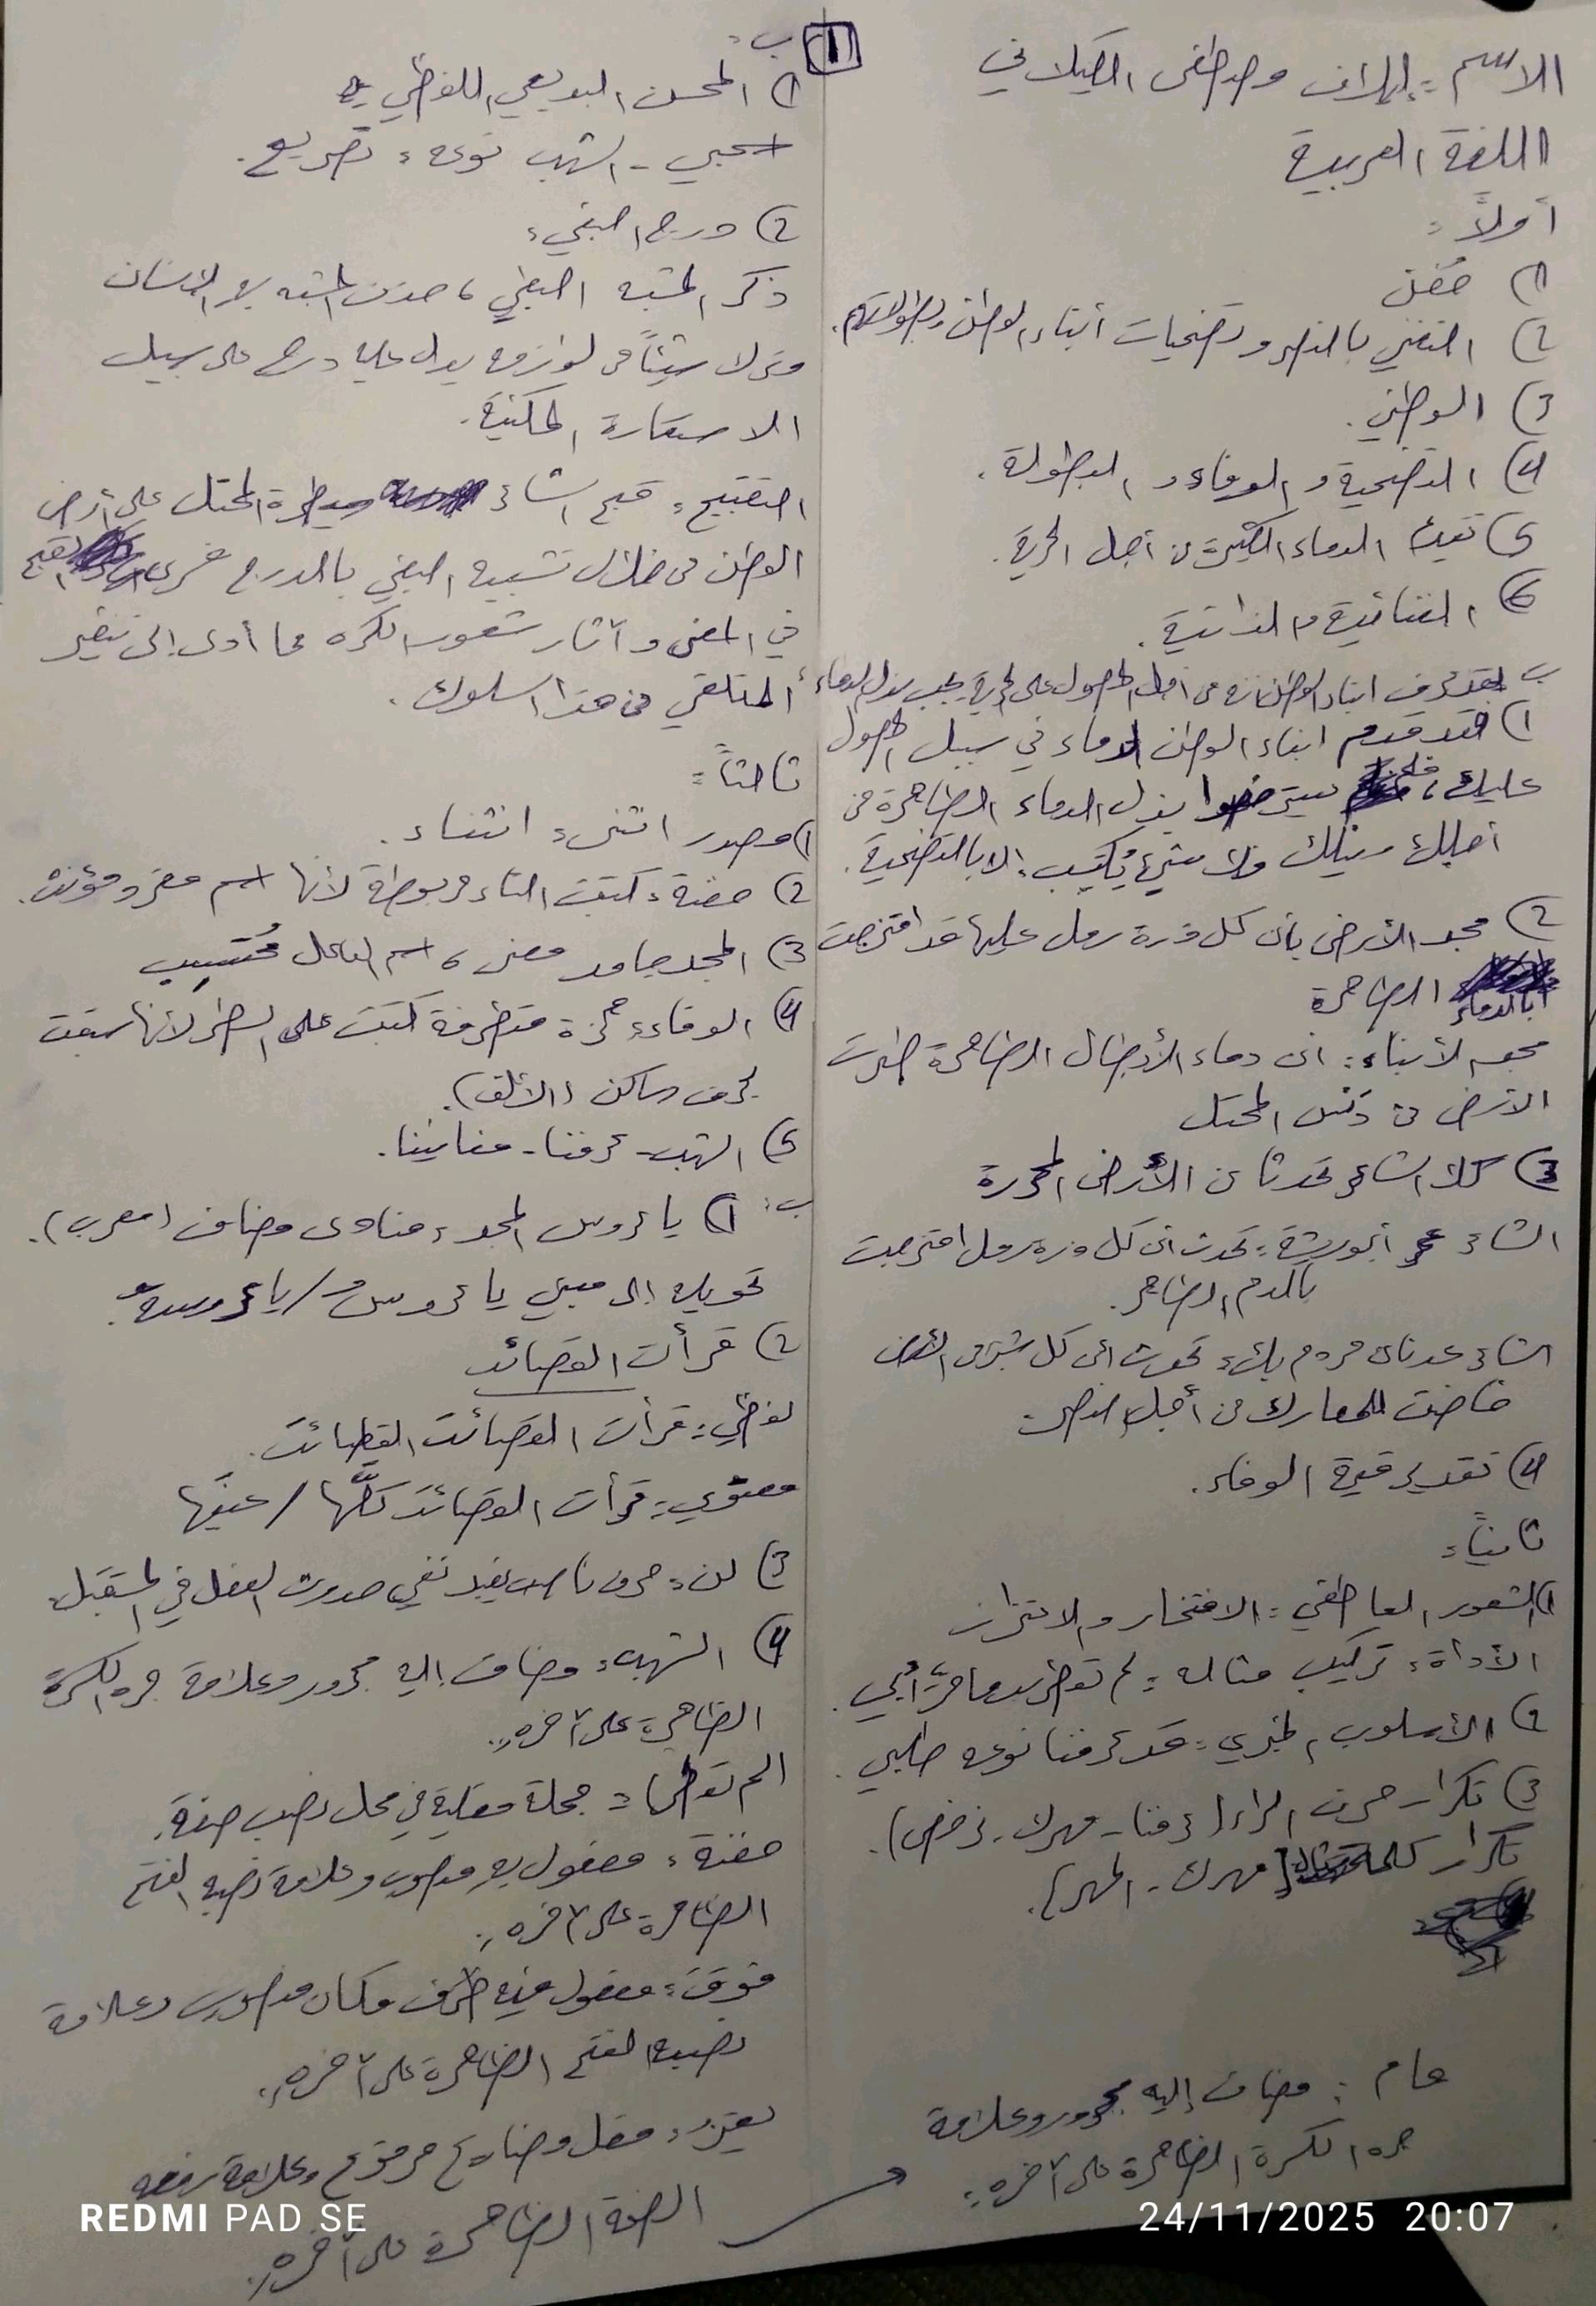 الاسم: إلهام مصطفى الكيلاني
اللغة العربية
أولاً:
1) حفن
2) التغني بالنصر وتضحيات أبناء الوطن وبطولاتهم.
3) الوطني.
4) التضحية والوفاء والبطولة.
5) الدماء الكثيرة من أجل الحرية.
6) الغنائية والذاتية.
ب لقد عرف ابناء الوطن انه من اجل الحصول على الحرية يجب بذل الدماء
1) فقد قدم ابناء الوطن الدماء في سبيل الحصول
عليك، بذل الدماء الطاهرة من
أجلك ولا شيء يُكتسب إلا بالتضحية.
2) مجد الأرض بأن كل ذرة رمل عليها قد امتزجت
بالدماء الطاهرة
مجد الأبناء: ان دماء الأبطال الطاهرة طهرت
الأرض من دَنَس المحتل
3) كلا الشاعر تحدثا عن الأرض المحررة
الشاعر عمر أبو ريشة: تحدث ان كل ذرة رمل امتزجت
بالدم الطاهر.
الشاعر عدنان مردم بك: تحدث ان كل شبر من الأرض
خاضت المعارك من أجل النصر.
4) تقدير قيمة الوفاء.
ثانياً:
1) الشعور العاطفي: الافتخار والاعتزاز
الأداة: تركيب مثاله: لم تعطر بدما حرّ أبي.
2) الأسلوب الخبري: قد عرفنا نوعه طلبي.
3) تكرار حرف الراء (عرفنا - مهرك - رخص).
تكرار كلمة [مهرك - المهر].
ب:
1) المحسن البديعي اللفظي
اسحبي - الشهب نوعه: تصريع.
2) درج البغي:
ذكر المشبه البغي، حذف المشبه به الإنسان
وترك شيئاً من لوازمه يدل عليه درج على سبيل
الاستعارة المكنية.
التقبيح: قبح الشاعر سيطرة المحتل على أرض
الوطن من خلال تشبيه البغي بالدرج القبح
في المعنى وآثار شعور الكره مما أدى إلى تنفير
المتلقي من هذا السلوك.
ثالثاً:
1) مصدر انثنى: انثناء.
2) حفنة: كتبت التاء مربوطة لأنها اسم مفرد مؤنث.
3) المجد جامد معنى، اسم الفاعل مُكتسِب
4) الوفاء: همزة متطرفة كتبت على السطر لأنها سبقت
بحرف ساكن (الألف).
5) الشهب - عرفنا - مغانينا.
ب: 1) يا عروس المجد: منادى مضاف (معرب).
تحويله إلى مبني يا عروسُ / يا عروسةُ.
2) قرأت القصائد
لفظي: قرأت القصائدَ القصائدَ.
معنوي: قرأت القصائدَ كلَّها / عينَها
3) لن: حرف ناصب يفيد نفي حدوث الفعل في المستقبل
4) الشهب: مضاف إليه مجرور وعلامة جره الكسرة
الظاهرة على آخره.
(لم تعطر): جملة فعلية في محل نصب صفة.
حفنة: مفعول به منصوب وعلامة نصبه الفتح
الظاهرة على آخره.
فوق: مفعول فيه ظرف مكان منصوب وعلامة
نصبه الفتح الظاهرة على آخره.
فعل مضارع مرفوع وعلامة رفعه
الضمة الظاهرة على آخره.
عام: مضاف إليه مجرور وعلامة
جره الكسرة الظاهرة على آخره.
REDMI PAD SE
24/11/2025 20:07